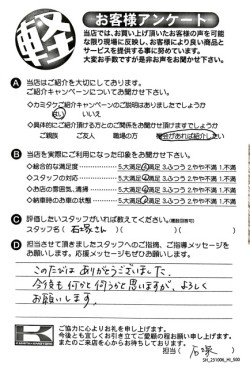 軽
お客様アンケート
当店では、お買い上げ頂いたお客様の声を可能
な限り現場に反映し、お客様により良い商品と
サービスを提供する事に努めています。
大変お手数ですが是非お声をお聞かせ下さい。
A 当店はご紹介を大切にしております。
ご紹介キャンペーンについてお聞かせ下さい。
◇カミタケご紹介キャンペーンのご説明はありましたでしょうか
はい いいえ
◇具体的にご紹介頂ける方とのご関係をお聞かせ頂けますでしょうか
ご親族 ご友人 職場の方 機会があれば紹介したい
B 当店を実際にご利用になった印象をお聞かせ下さい。
◇総合的な満足度 5.大満足 4.満足 3.ふつう 2.やや不満 1.不満
◇スタッフの対応 5.大満足 4.満足 3.ふつう 2.やや不満 1.不満
◇お店の雰囲気、清掃 5.大満足 4.満足 3.ふつう 2.やや不満 1.不満
◇納車時のお車の状態 5.大満足 4.満足 3.ふつう 2.やや不満 1.不満
C 評価したいスタッフがいれば教えてください。(複数回答可)
スタッフ名( 石塚さん )( )( )
D 担当させて頂きましたスタッフへのご指摘、ご指導メッセージを
お願いします。応援メッセージもぜひお願いします。
このたびは ありがとうございました。
今後も何かと伺うかと思いますが、よろしく
お願いします。
K
ご協力に心よりお礼を申し上げます。
今後とも宜しくお引き立てご愛顧の程お願い申し上げます。
またのご来店を心からお待ちしております。
担当( 石塚 )
SH_231006_HI_500